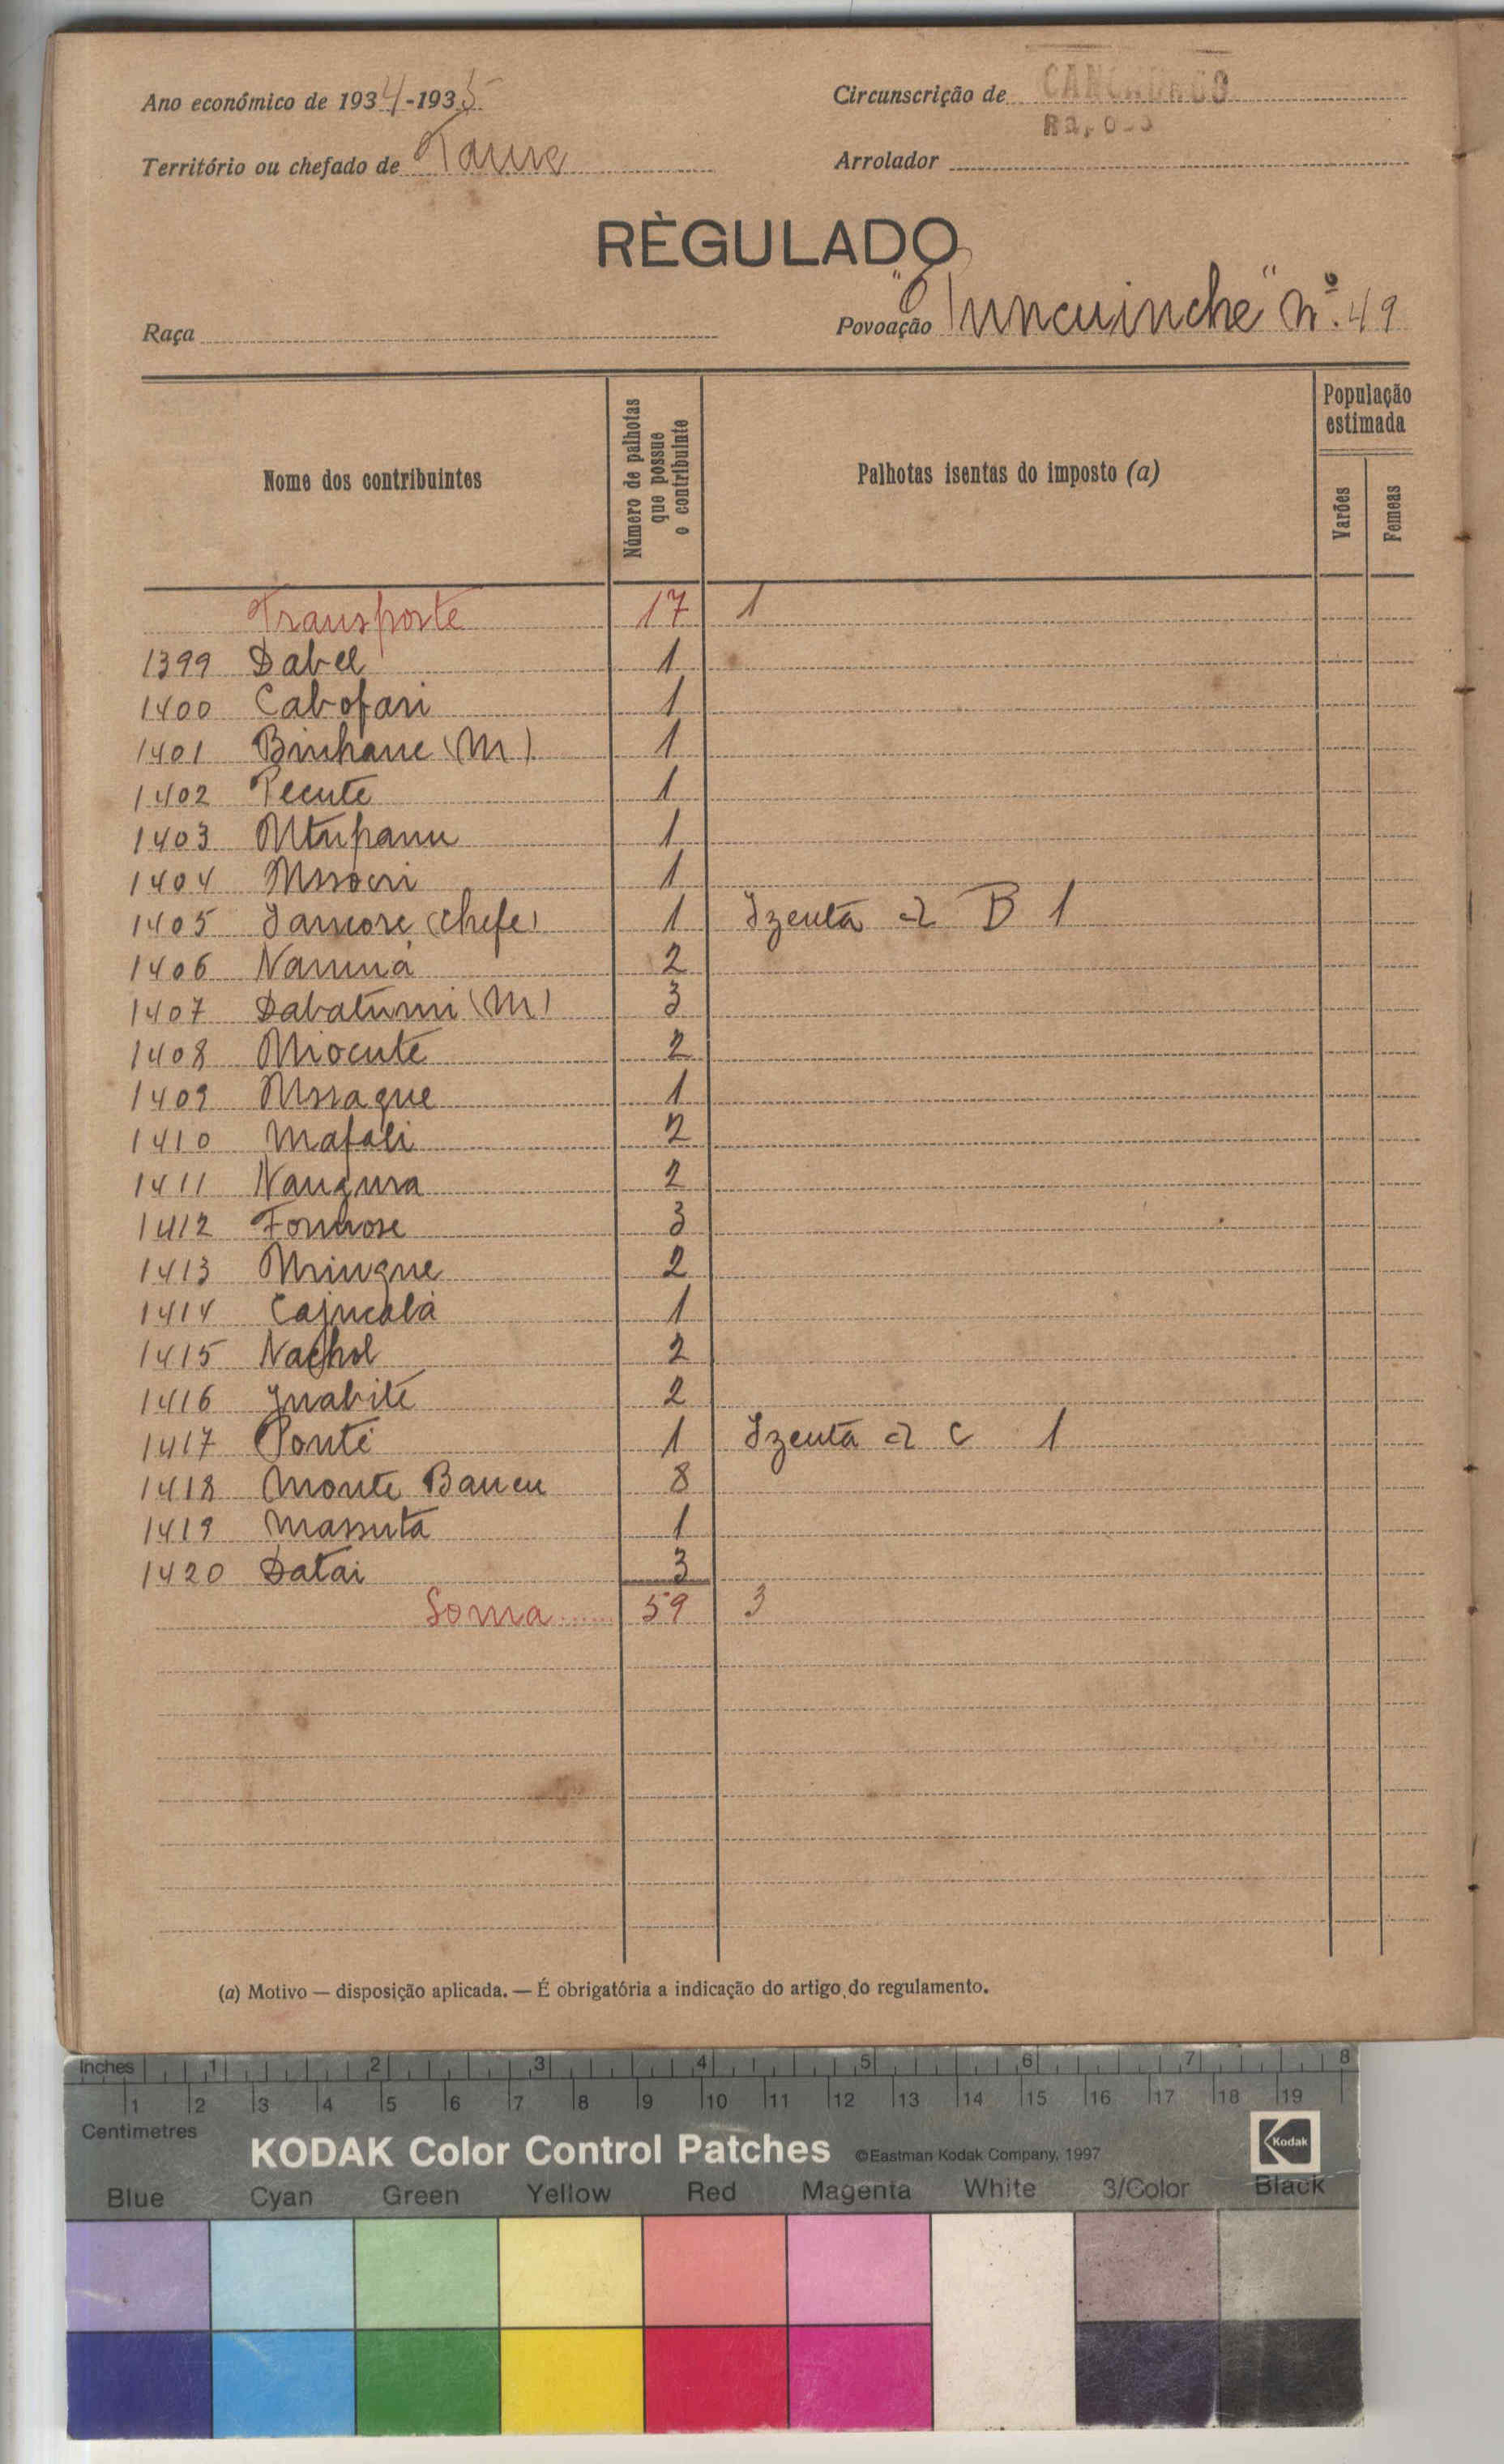 Ano económico de 1934-1935
Circunscrição de CANCHUNGO
Território ou chefado de Tame
Arrolador
RÈGULADO
Raça
Povoação nº 49
Nome dos contribuintes
Número de palhotas que possue o contribuinte
Palhotas isentas do imposto (a)
População estimada
Varões
Femeas
Transporte 17 1
1399 Dabel 1
1400 Cabofari 1
1401 Binhane (M) 1
1402 Pecute 1
1403 Mtupanu 1
1404 1
1405 (chefe) 1 Izenta B 1
1406 Naminá 2
1407 Dabatumi (M) 3
1408 Miocute 2
1409 Mssaque 1
1410 Mafali 2
1411 Naugura 2
1412 Formose 3
1413 Mringue 2
1414 Cajucalá 1
1415 Nachol 2
1416 Ynabite 2
1417 Ponte 1 Izenta C 1
1418 Monte Bancu 8
1419 Massuta 1
1420 Datai 3
Soma 59 3
(a) Motivo — disposição aplicada. — É obrigatória a indicação do artigo do regulamento.
Inches 1 2 3 4 5 6 7 8
1 2 3 4 5 6 7 8 9 10 11 12 13 14 15 16 17 18 19
Centimetres
KODAK Color Control Patches ©Eastman Kodak Company, 1997 Kodak
Blue Cyan Green Yellow Red Magenta White 3/Color Black